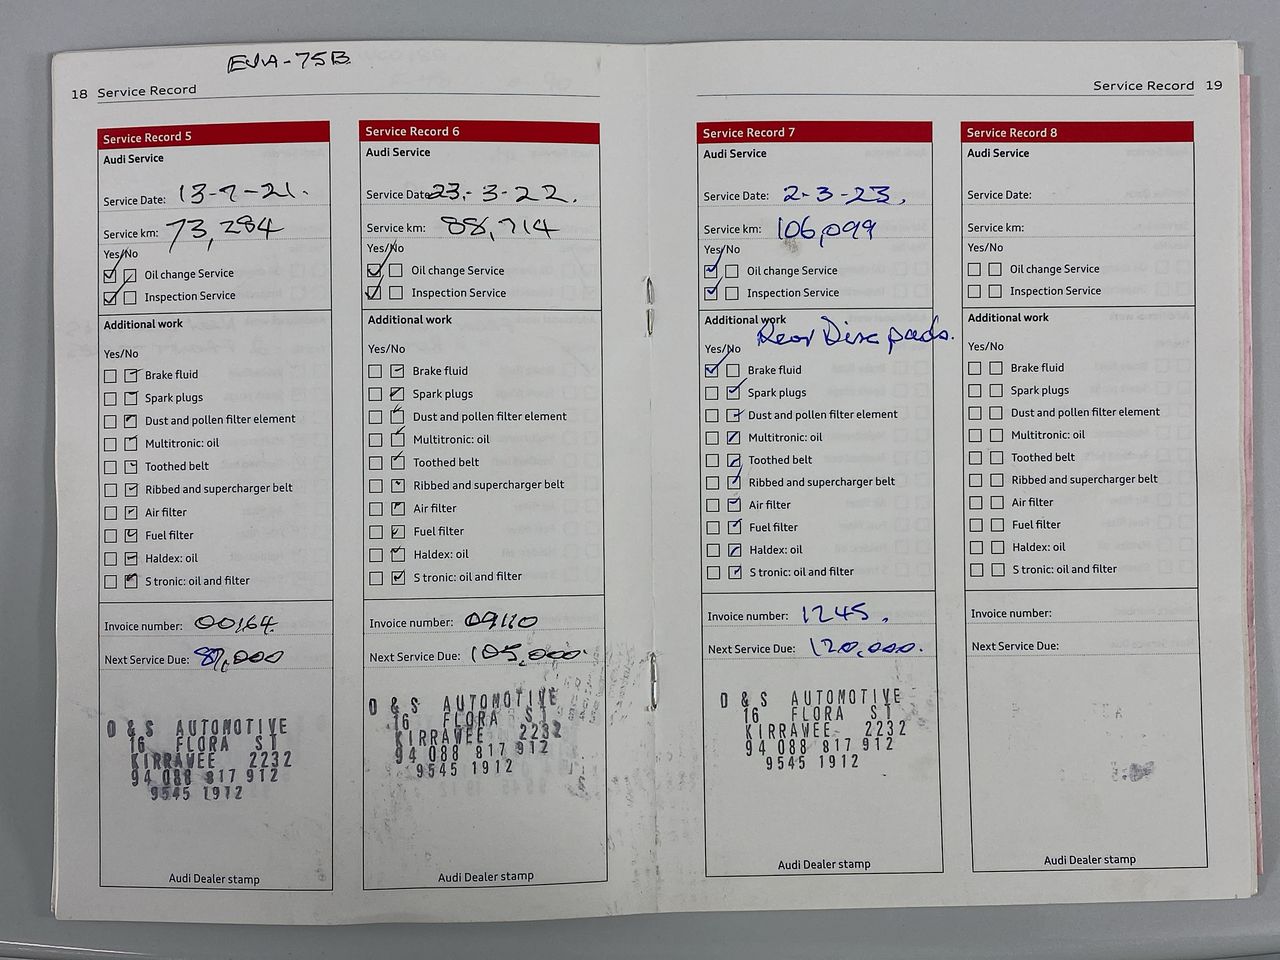 EJA-75B
18 Service Record
Service Record 5
Audi Service
Service Date: 13-7-21.
Service km: 73,284
Yes/No
Oil change Service
Inspection Service
Additional work
Yes/No
Brake fluid
Spark plugs
Dust and pollen filter element
Multitronic: oil
Toothed belt
Ribbed and supercharger belt
Air filter
Fuel filter
Haldex: oil
S tronic: oil and filter
Invoice number: 00164.
Next Service Due: 87,000
D & S AUTOMOTIVE
16 FLORA ST
KIRRAWEE 2232
94 088 817 912
9545 1912
Audi Dealer stamp
Service Record 6
Audi Service
Service Date: 23.-3-22.
Service km: 88,714
Yes/No
Oil change Service
Inspection Service
Additional work
Yes/No
Brake fluid
Spark plugs
Dust and pollen filter element
Multitronic: oil
Toothed belt
Ribbed and supercharger belt
Air filter
Fuel filter
Haldex: oil
S tronic: oil and filter
Invoice number: 09110
Next Service Due: 105,000.
D & S AUTOMOTIVE
16 FLORA ST
KIRRAWEE 2232
94 088 817 912
9545 1912
Audi Dealer stamp
Service Record 19
Service Record 7
Audi Service
Service Date: 2-3-23.
Service km: 106,099
Yes/No
Oil change Service
Inspection Service
Additional work
Rear Disc pads.
Yes/No
Brake fluid
Spark plugs
Dust and pollen filter element
Multitronic: oil
Toothed belt
Ribbed and supercharger belt
Air filter
Fuel filter
Haldex: oil
S tronic: oil and filter
Invoice number: 1245.
Next Service Due: 120,000.
D & S AUTOMOTIVE
16 FLORA ST
KIRRAWEE 2232
94 088 817 912
9545 1912
Audi Dealer stamp
Service Record 8
Audi Service
Service Date:
Service km:
Yes/No
Oil change Service
Inspection Service
Additional work
Yes/No
Brake fluid
Spark plugs
Dust and pollen filter element
Multitronic: oil
Toothed belt
Ribbed and supercharger belt
Air filter
Fuel filter
Haldex: oil
S tronic: oil and filter
Invoice number:
Next Service Due:
Audi Dealer stamp